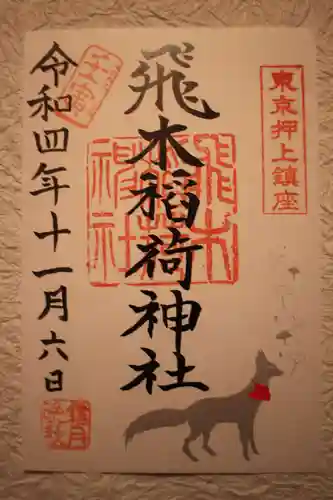 東京押上鎮座
飛木稲荷神社
飛木稲荷神社
令和四年十一月六日